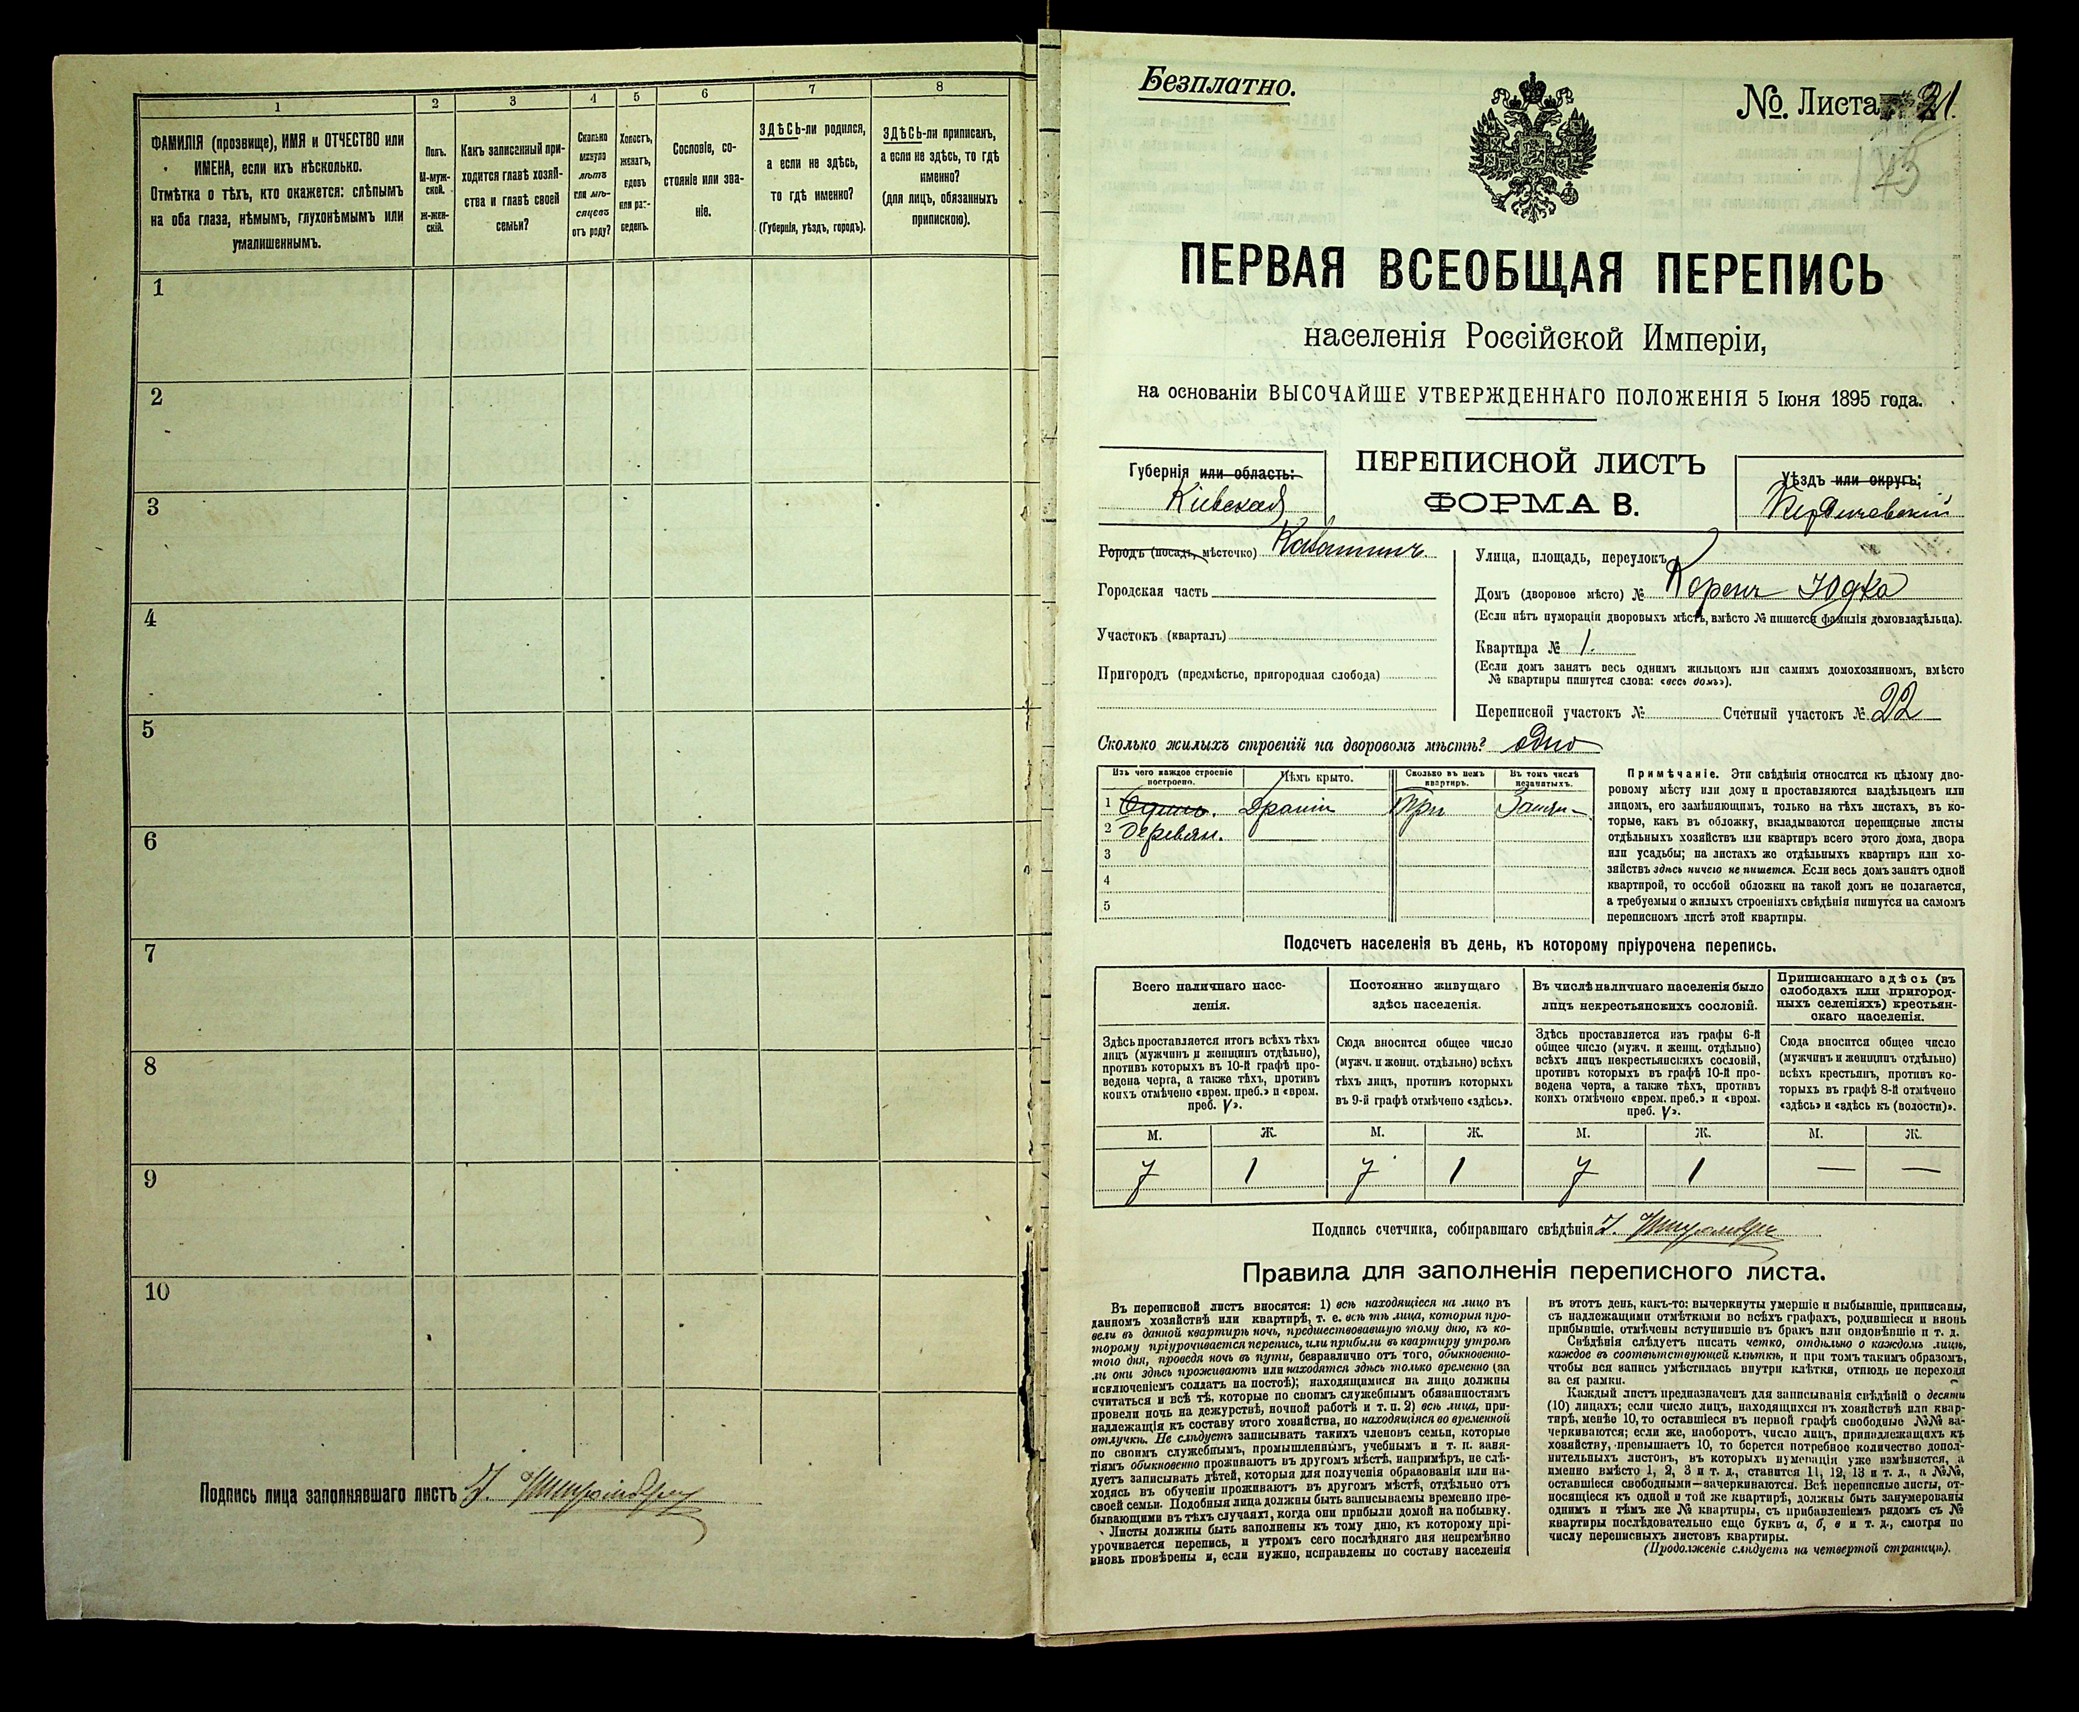 1
2
3
4
5
6
7
8
ФАМИЛІЯ (прозвище), ИМЯ и ОТЧЕСТВО или
ИМЕНА, если ихъ нѣсколько.
Отмѣтка о тѣхъ, кто окажется: слѣпымъ
на оба глаза, нѣмымъ, глухонѣмымъ или
умалишеннымъ.
Полъ.
М-муж-
ской.
Ж-жен-
скій.
Какъ записанный при-
ходится главѣ хозяй-
ства и главѣ своей
семьи?
Сколько
минуло
лѣтъ
или мѣ-
сяцевъ
отъ роду?
Холостъ,
женатъ,
вдовъ
или раз-
веденъ.
Сословіе, со-
стояніе или зва-
ніе.
ЗДѢСЬ-ли родился,
а если не здѣсь,
то гдѣ именно?
(Губернія, уѣздъ, городъ).
ЗДѢСЬ-ли приписанъ,
а если не здѣсь, то гдѣ
именно?
(для лицъ, обязанныхъ
припискою).
1
2
3
4
5
6
7
8
9
10
Подпись лица заполнявшаго листъ
Безплатно.
№. Листа 21.
ПЕРВАЯ ВСЕОБЩАЯ ПЕРЕПИСЬ
населенія Россійской Имперіи,
на основаніи ВЫСОЧАЙШЕ УТВЕРЖДЕННАГО ПОЛОЖЕНІЯ 5 Іюня 1895 года.
Губернія или область:
Кіевская
ПЕРЕПИСНОЙ ЛИСТЪ
ФОРМА В.
Уѣздъ или округъ:
Бердичевскій
Городъ (посадъ, мѣстечко)
Городская часть
Участокъ (кварталъ)
Пригородъ (предмѣстье, пригородная слобода)
Улица, площадь, переулокъ
Домъ (дворовое мѣсто) № Корень Юдка
(Если нѣтъ нумераціи дворовыхъ мѣстъ, вмѣсто № пишется фамилія домовладѣльца).
Квартира № 1.
(Если домъ занятъ весь однимъ жильцомъ или самимъ домохозяиномъ, вмѣсто
№ квартиры пишутся слова: «весь домъ»).
Переписной участокъ № Счетный участокъ № 22
Сколько жилыхъ строеній на дворовомъ мѣстѣ? одно
Изъ чего каждое строеніе
построено.
Чѣмъ крыто.
Сколько въ немъ
квартиръ.
Въ томъ числѣ
незанятыхъ.
1 дранью три
2 деревян.
3
4
5
Примѣчаніе. Эти свѣдѣнія относятся къ цѣлому дво-
ровому мѣсту или дому и проставляются владѣльцемъ или
лицомъ, его замѣняющимъ, только на тѣхъ листахъ, въ ко-
торые, какъ въ обложку, вкладываются переписные листы
отдѣльныхъ хозяйствъ или квартиръ всего этого дома, двора
или усадьбы; на листахъ же отдѣльныхъ квартиръ или хо-
зяйствъ здѣсь ничего не пишется. Если весь домъ занятъ одной
квартирой, то особой обложки на такой домъ не полагается,
а требуемыя о жилыхъ строеніяхъ свѣдѣнія пишутся на самомъ
переписномъ листѣ этой квартиры.
Подсчетъ населенія въ день, къ которому пріурочена перепись.
Всего наличнаго насе-
ленія.
Постоянно живущаго
здѣсь населенія.
Въ числѣ наличнаго населенія было
лицъ некрестьянскихъ сословій.
Приписаннаго здѣсь (въ
слободахъ или пригород-
ныхъ селеніяхъ) крестьян-
скаго населенія.
Здѣсь проставляется итогъ всѣхъ тѣхъ
лицъ (мужчинъ и женщинъ отдѣльно),
противъ которыхъ въ 10-й графѣ про-
ведена черта, а также тѣхъ, противъ
коихъ отмѣчено «врем. преб.» и «врем.
преб. V».
Сюда вносится общее число
(мужч. и женщ. отдѣльно) всѣхъ
тѣхъ лицъ, противъ которыхъ
въ 9-й графѣ отмѣчено «здѣсь».
Здѣсь проставляется изъ графы 6-й
общее число (мужч. и женщ. отдѣльно)
всѣхъ лицъ некрестьянскихъ сословій,
противъ которыхъ въ графѣ 10-й про-
ведена черта, а также тѣхъ, противъ
коихъ отмѣчено «врем. преб.» и «врем.
преб. V».
Сюда вносится общее число
(мужчинъ и женщинъ отдѣльно)
всѣхъ крестьянъ, противъ ко-
торыхъ въ графѣ 8-й отмѣчено
«здѣсь» и «здѣсь къ (волости)».
М. Ж. М. Ж. М. Ж. М. Ж.
7 1 7 1 7 1 — —
Подпись счетчика, собиравшаго свѣдѣнія
Правила для заполненія переписного листа.
Въ переписной листъ вносятся: 1) всѣ находящіеся на лицо въ
данномъ хозяйствѣ или квартирѣ, т. е. всѣ тѣ лица, которыя про-
вели въ данной квартирѣ ночь, предшествовавшую тому дню, къ ко-
торому пріурочивается перепись, или прибыли въ квартиру утромъ
того дня, проведя ночь въ пути, безразлично отъ того, обыкновенно-
ли они здѣсь проживаютъ или находятся здѣсь только временно (за
исключеніемъ солдатъ на постоѣ); находящимися на лицо должны
считаться и всѣ тѣ, которые по своимъ служебнымъ обязанностямъ
провели ночь на дежурствѣ, ночной работѣ и т. п. 2) всѣ лица, при-
надлежащія къ составу этого хозяйства, но находящіяся во временной
отлучкѣ. Не слѣдуетъ записывать такихъ членовъ семьи, которые
по своимъ служебнымъ, промышленнымъ, учебнымъ и т. п. заня-
тіямъ обыкновенно проживаютъ въ другомъ мѣстѣ, напримѣръ, не слѣ-
дуетъ записывать дѣтей, которыя для полученія образованія или на-
ходясь въ обученіи проживаютъ въ другомъ мѣстѣ, отдѣльно отъ
своей семьи. Подобныя лица должны быть записываемы временно пре-
бывающими въ тѣхъ случаяхъ, когда они прибыли домой на побывку.
Листы должны быть заполнены къ тому дню, къ которому прі-
урочивается перепись, и утромъ сего послѣдняго дня непремѣнно
вновь провѣрены и, если нужно, исправлены по составу населенія
въ этотъ день, какъ-то: вычеркнуты умершіе и выбывшіе, приписаны,
съ надлежащими отмѣтками во всѣхъ графахъ, родившіеся и вновь
прибывшіе, отмѣчены вступившіе въ бракъ или овдовѣвшіе и т. д.
Свѣдѣнія слѣдуетъ писать четко, отдѣльно о каждомъ лицѣ,
каждое въ соотвѣтствующей клѣткѣ, и при томъ такимъ образомъ,
чтобы вся запись умѣстилась внутри клѣтки, отнюдь не переходя
за ея рамки.
Каждый листъ предназначенъ для записыванія свѣдѣній о десяти
(10) лицахъ; если число лицъ, находящихся въ хозяйствѣ или квар-
тирѣ, менѣе 10, то оставшіеся въ первой графѣ свободные №№ за-
черкиваются; если же, наоборотъ, число лицъ, принадлежащихъ къ
хозяйству, превышаетъ 10, то берется потребное количество допол-
нительныхъ листовъ, въ которыхъ нумерація уже измѣняется, а
именно вмѣсто 1, 2, 3 и т. д., ставится 11, 12, 13 и т. д., а №№,
оставшіеся свободными—зачеркиваются. Всѣ переписные листы, от-
носящіеся къ одной и той же квартирѣ, должны быть занумерованы
однимъ и тѣмъ же № квартиры, съ прибавленіемъ рядомъ съ №
квартиры послѣдовательно еще буквъ а, б, в и т. д., смотря по
числу переписныхъ листовъ квартиры.
(Продолженіе слѣдуетъ на четвертой страницѣ).